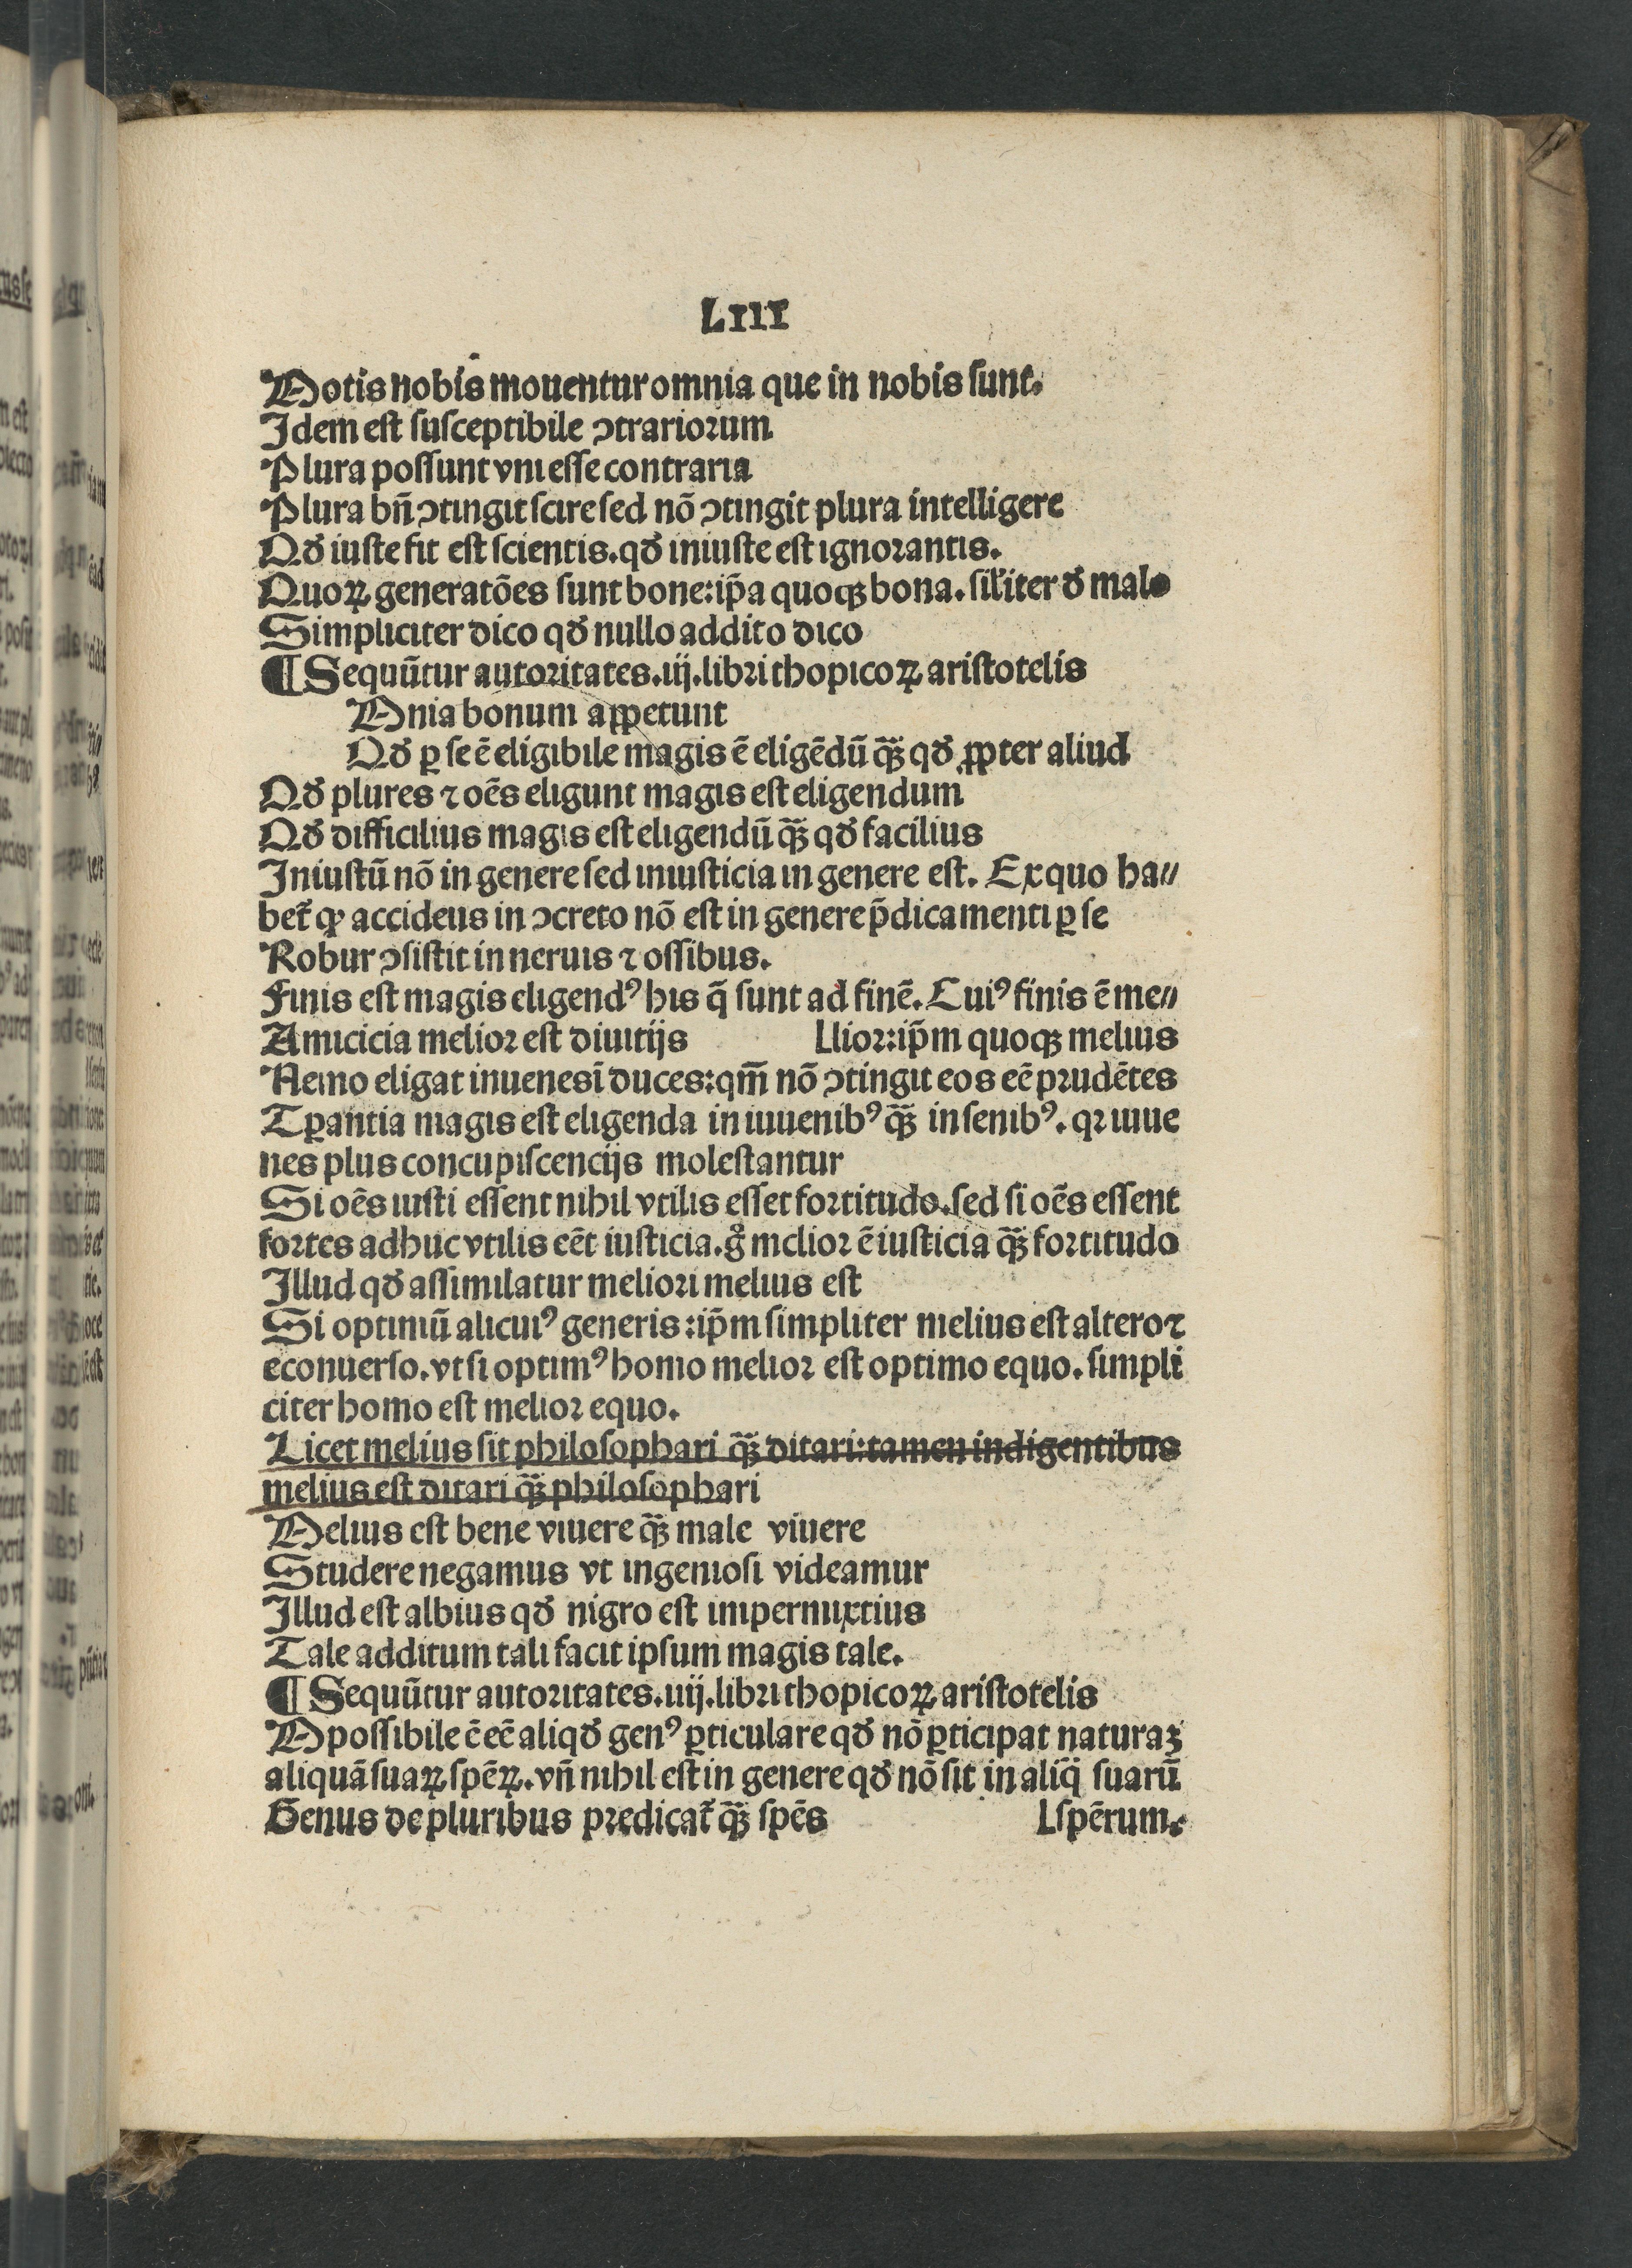 LIII
Motis nobis mouentur omnia que in nobis sunt.
Idem est susceptibile ↄtrariorum
Plura possunt vni esse contraria
Plura bñ ↄtingit scire sed nõ ↄtingit plura intelligere
Qđ iuste fit est scientis. qđ iniuste est ignorantis.
Quoꝝ generatões sunt bone: ip̃a quoqꝫ bona. silꝉiter đ malo
Simpliciter dico qđ nullo addito dico
¶ Sequũtur autoritates .iij. libri thopicoꝝ aristotelis
Omnia bonum appetunt
Qđ ꝑ se ẽ eligibile magis ẽ eligẽdũ q̃ꝫ qđ ꝓpter aliud
Qđ plures ⁊ oẽs eligunt magis est eligendum
Qđ difficilius magis est eligendũ q̃ꝫ qđ facilius
Iniustũ nõ in genere sed iniusticia in genere est. Ex quo ha//
bet̃ ꝙ accideus in ↄcreto nõ est in genere p̃dicamenti ꝑ se
Robur ↄsistit in neruis ⁊ ossibus.
Finis est magis eligendꝰ his q̃ sunt ad finẽ. Cuiꝰ finis ẽ me//
Amicicia melior est diuitijs Llior: ip̃m quoqꝫ melius
Nemo eligat iuuenes ĩ duces: qm̃ nõ ↄtingit eos eẽ prudẽtes
Tꝑantia magis est eligenda in iuuenibꝰ q̃ꝫ in senibꝰ. qꝛ iuue
nes plus concupiscencijs molestantur
Si oẽs iusti essent nihil vtilis esset fortitudo. sed si oẽs essent
fortes adhuc vtilis eẽt iusticia. g̊ melior ẽ iusticia q̃ꝫ fortitudo
Illud qđ assimilatur meliori melius est
Si optimũ alicuiꝰ generis: ip̃m simpliter melius est altero ⁊
econuerso. vt si optimꝰ homo melior est optimo equo. simpli
citer homo est melior equo.
Licet melius sit philosophari q̃ꝫ ditari: tamen indigentibus
melius est ditari q̃ꝫ philosophari
Melius est bene viuere q̃ꝫ male viuere
Studere negamus vt ingeniosi videamur
Illud est albius qđ nigro est impermixtius
Tale additum tali facit ipsum magis tale.
¶ Sequũtur autoritates .iiij. libri thopicoꝝ aristotelis
Impossibile ẽ eẽ aliqđ genꝰ ꝑticulare qđ nõ ꝑticipat naturaꝫ
aliquã suaꝝ spẽꝝ. vñ nihil est in genere qđ nõ sit in aliq̃ suarũ
Genus de pluribus predicat̃ q̃ꝫ spẽs Lspẽrum.